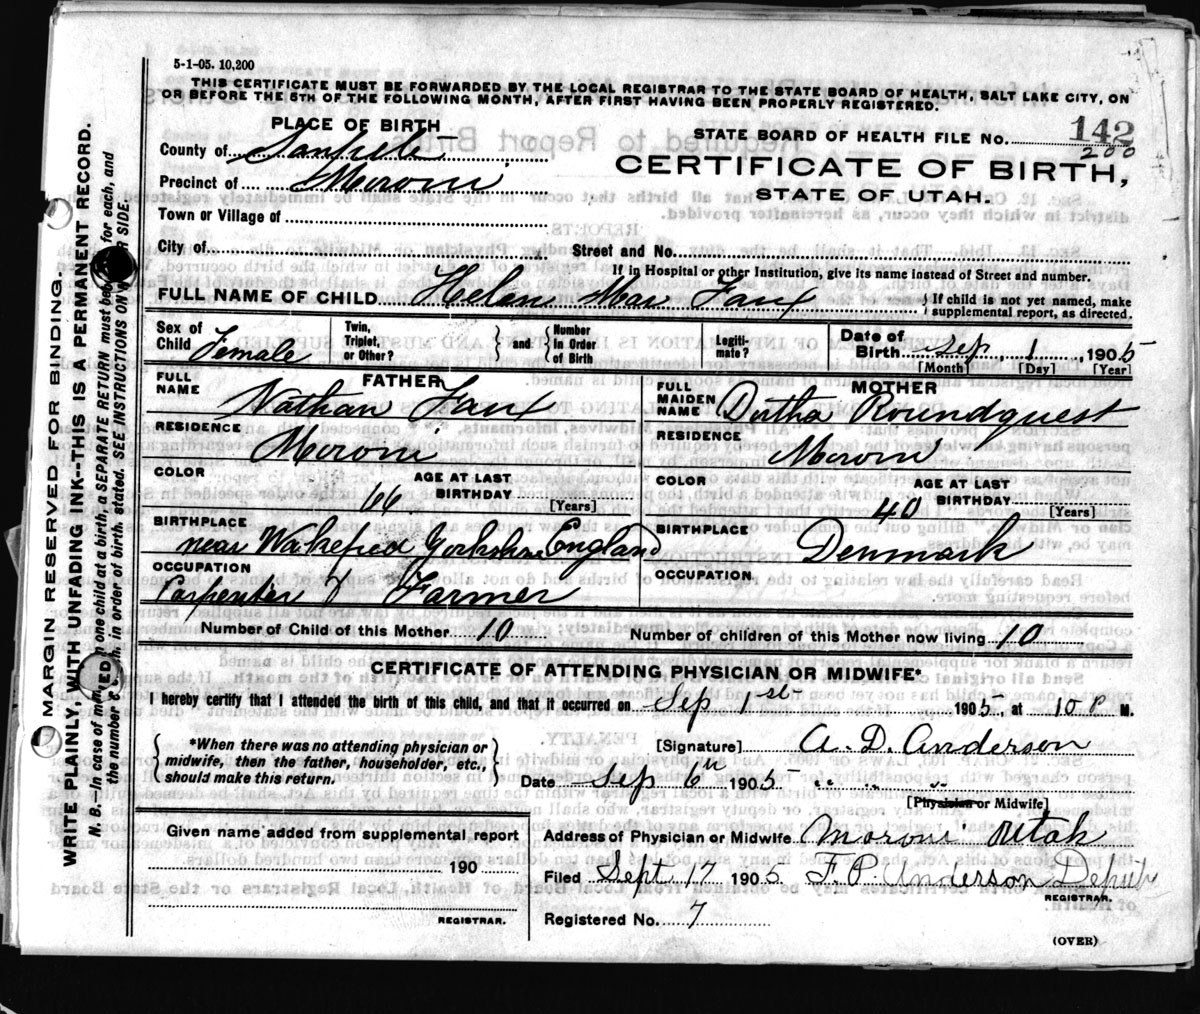 5-1-05. 10,200
THIS CERTIFICATE MUST BE FORWARDED BY THE LOCAL REGISTRAR TO THE STATE BOARD OF HEALTH, SALT LAKE CITY, ON
OR BEFORE THE 5TH OF THE FOLLOWING MONTH, AFTER FIRST HAVING BEEN PROPERLY REGISTERED.
PLACE OF BIRTH
STATE BOARD OF HEALTH FILE NO. 142
200
County of Sanpete
CERTIFICATE OF BIRTH,
Precinct of Moroni
STATE OF UTAH.
Town or Village of
City of Street and No.
If in Hospital or other Institution, give its name instead of Street and number.
FULL NAME OF CHILD Helen Mar Faux { If child is not yet named, make
supplemental report, as directed.
Sex of Child Female
Twin, Triplet, or Other? } and { Number In Order of Birth
Legitimate?
Date of Birth Sep 1, 1905
[Month] [Day] [Year]
FATHER
FULL NAME Nathan Faux
MOTHER
FULL MAIDEN NAME Dutha Roundquest
RESIDENCE Moroni
RESIDENCE Moroni
COLOR AGE AT LAST BIRTHDAY 66 [Years]
COLOR AGE AT LAST BIRTHDAY 40 [Years]
BIRTHPLACE near Wakefied Yorkshire England
BIRTHPLACE Denmark
OCCUPATION Carpenter & Farmer
OCCUPATION
Number of Child of this Mother 10 Number of children of this Mother now living 10
CERTIFICATE OF ATTENDING PHYSICIAN OR MIDWIFE*
I hereby certify that I attended the birth of this child, and that it occurred on Sep 1st 1905, at 10 P M.
{ *When there was no attending physician or
midwife, then the father, householder, etc.,
should make this return. }
[Signature] A. D. Anderson
Date Sep 6th 1905
[Physician or Midwife]
Given name added from supplemental report
190
REGISTRAR.
Address of Physician or Midwife Moroni Utah
Filed Sept 17 1905 F. P. Anderson Deputy
REGISTRAR.
Registered No. 7
(OVER)
MARGIN RESERVED FOR BINDING.
WRITE PLAINLY, WITH UNFADING INK--THIS IS A PERMANENT RECORD.
N. B.--In case of more than one child at a birth, a SEPARATE RETURN must be for each, and
the number in order of birth stated. SEE INSTRUCTIONS ON SIDE.